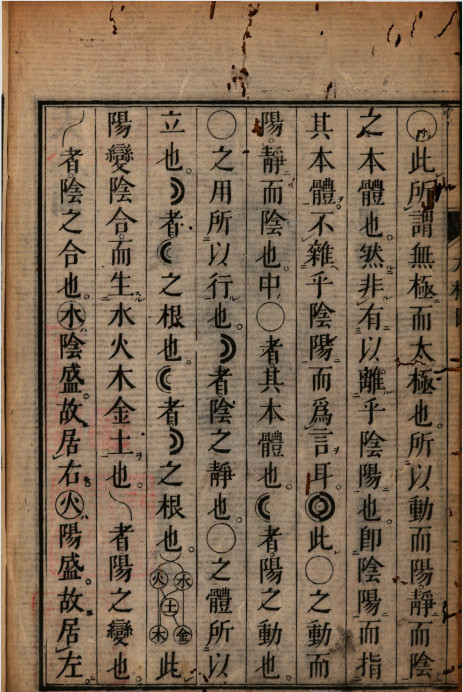 〇此所謂無極而太極也。所以動而陽靜而陰
之本體也。然非有以離乎陰陽也。卽陰陽而指
其本體。不雜乎陰陽而爲言耳。◎此〇之動而
陽。靜而陰也。中〇者其本體也。☾者陽之動也
〇之用所以行也。☽者陰之靜也。〇之體所以
立也。☽者☾之根也。☾者☽之根也。火水土木金此
陽變陰合而生水火木金土也。㇏者陽之變也
㇒者陰之合也。水陰盛。故居右。火陽盛。故居左